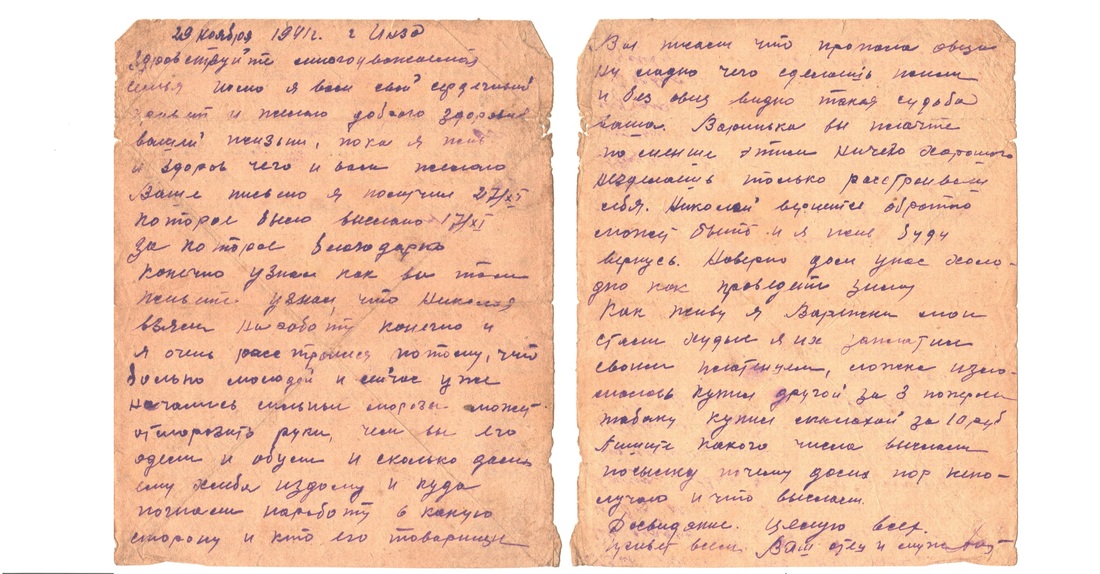 29 ноября 1941г. г Инза
Здравствуйте многоуважаемая
семья шлю я вам свой сердечный
привет и желаю доброго здоровья
вашей жизни, пока я жив
и здоров чего и вам желаю
Ваше письмо я получил 27/XI
которое было выслано 17/XI
за которое благодарю
конечно узнал как вы там
живете. узнал, что Николая
взяли на работу конечно и
я очень расстроился потому, что
больно молодой и сейчас уже
начались сильные морозы может
отморозить руки, чем вы его
одели и обули и сколько дали
ему хлеба издому и куда
погнали наработу в какую
сторону и кто его товарищи
Вы писали что пропала овца
ну ладно чего сделаешь жили
и без овец видно такая судьба
ваша. Варинька вы плачте
по меньше этим ничего харошого
несделаешь только расстроиваеш
себя. Николай вернится обратно
может быть и я жив буду
вернусь. Наверно дом унас холо-
дно как проведете зиму
Как живу я Варежки мои
стали худые я их заплатил
своим, ложка изло-
малась купил другой за 3
табаку купил за 10 руб
Пишите какого числа выслали
посылку почему досих пор непо-
лучаю и что выслали.
Досвидание. Целую всех.
привет всем Ваш отец и муж